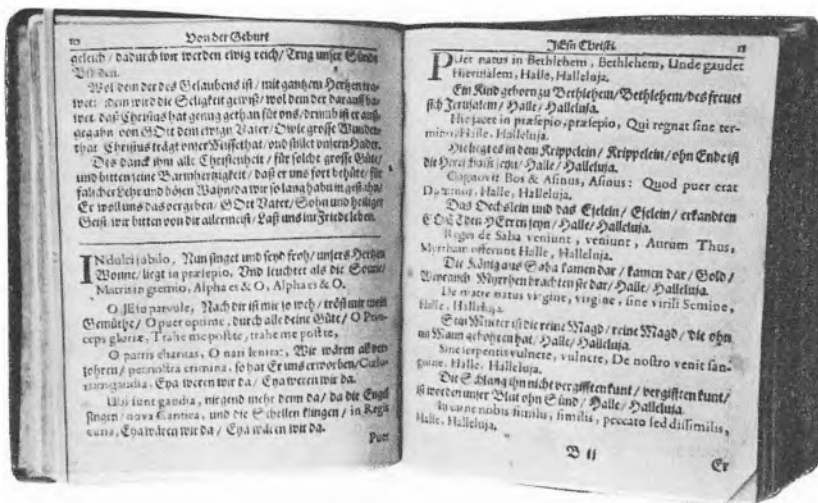 Von der Geburt
geleich / dadurch wir werden ewig reich / Trug unser Sünde
Wol dem der des Gelaubens ist / mit gantzem Hertzen
wet: dem wird die Seligkeit gewiß / wol dem der darauff
wet, daß Christus hat genug gethan für uns / drumb ist er auß-
gegahn von GOtt dem ewign Vater / O wie grosse Wunder-
that Christus trägt unser Missethat / und stillet unsern Hader.
Des danck ihm alle Christenheit / für solche grosse Güte /
und bitten seine Barmhertzigkeit / daß er uns fort behüte / für
falscher Lehr und bösen Wahn / da wir so lang habn in
Er woll uns das vergeben / GOtt Vater / Sohn und heiliger
Geist / wir bitten von dir allermeist / Laß uns im Friede leben.
IN dulci jubilo, Nun singet und seyd froh / unsers Hertzen
Wonne / liegt in præsepio, Und leuchtet als die Sonne /
Matris in gremio, Alpha es & O, Alpha es & O.
O JEsu parvule, Nach dir ist mir so weh / tröst mir mein
Gemüthe / O puer optime, durch alle deine Güte / O Prin-
ceps gloriæ, Trahe me post te, trahe me post te,
O patris charitas, O nati lenitas, Wir wären all ver-
lohren / per nostra crimina, so hat Er uns erworben /
rum gaudia, Eya weren wir da / Eya weren wir da.
Ubi sunt gaudia, nirgend mehr denn da / da die Engel
singen / nova Cantica, und die Schellen klingen / in Regis
curia, Eya wären wir da / Eya wären wir da.
Puer
JEsu Christi.
PUer natus in Bethlehem, Bethlehem, Unde gaudet
Hierusalem, Halle, Halleluja.
Ein Kind geborn zu Bethlehem / Bethlehem / des freuet
sich Jerusalem / Halle / Halleluja.
Hic jacet in præsepio, præsepio, Qui regnat sine ter-
mino, Halle, Halleluja.
Hie liegt es in dem Krippelein / Krippelein / ohn Ende ist
die Herrschafft seyn / Halle / Halleluja.
Cognovit Bos & Asinus, Asinus: Quod puer erat
Dominus, Halle, Halleluja.
Das Oechslein und das Eselein / Eselein / erkandten
GOtt den HErren seyn / Halle / Halleluja.
Reges de Saba veniunt, veniunt, Aurum Thus,
Myrrham offerunt Halle, Halleluja.
Die König aus Saba kamen dar / kamen dar / Gold /
Weyrauch Myrrhen brachten sie dar / Halle / Halleluja.
De matre natus virgine, virgine, sine virili Semine,
Halle, Halleluja.
Sein Mutter ist die reine Magd / reine Magd / die ohn
ein Mann gebohren hat / Halle / Halleluja.
Sine serpentis vulnere, vulnere, De nostro venit san-
guine, Halle, Halleluja.
Die Schlang ihn nicht vergifften kunt / vergifften kunt /
ist worden unser Blut ohn Sünd / Halle / Halleluja.
In carne nobis similis, similis, peccato sed dissimilis,
Halle, Halleluja.
B ii
Er